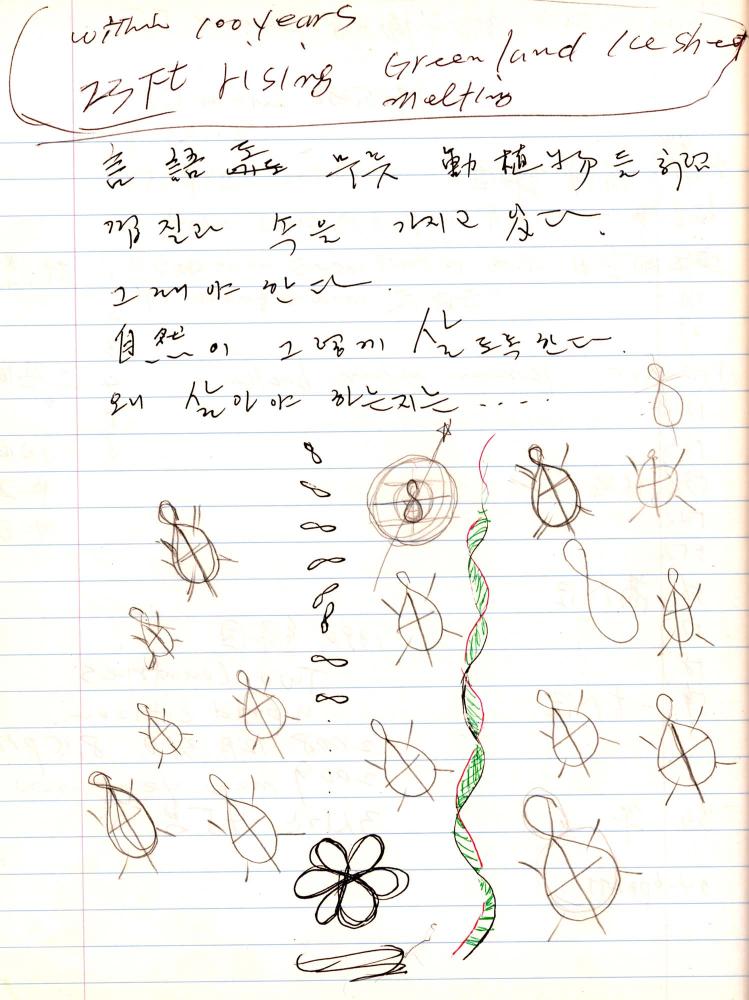 within 100 years
23 Ft rising Greenland Ice sheet
melting
言語 무릇 動植物들 처럼
껍질과 속을 가지고 있다.
그래야 한다.
自然이 그렇게 살도록 한다.
왜 살아야 하는지는 .....